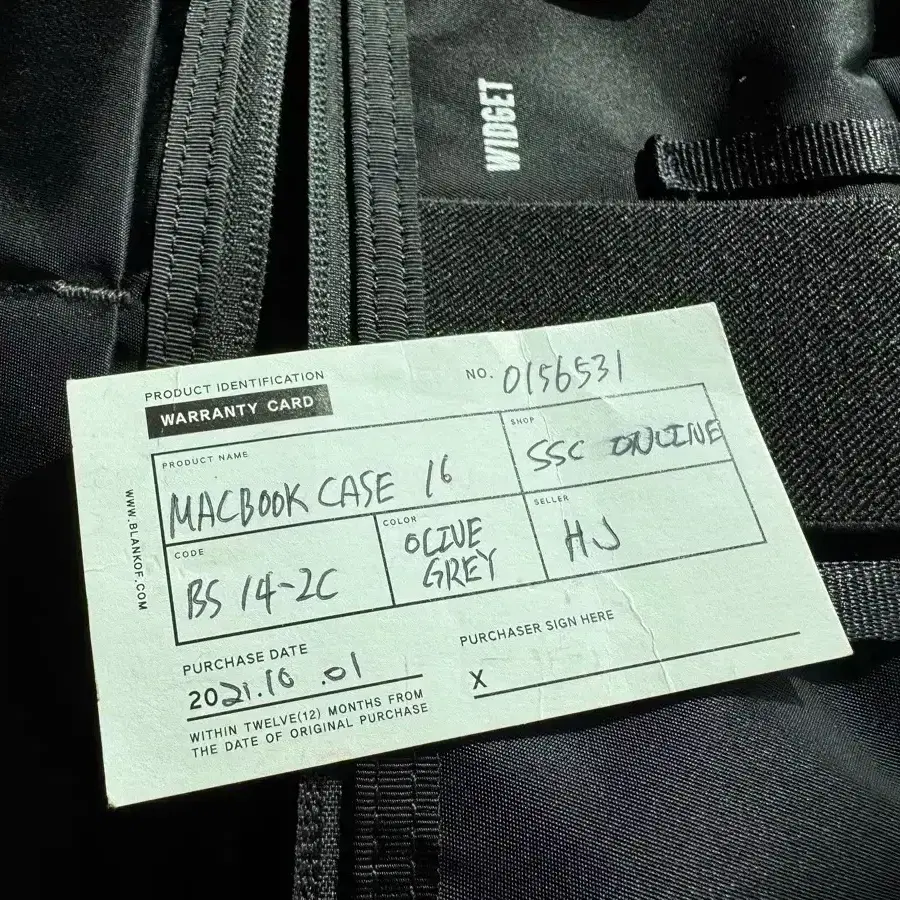 WIDGET
PRODUCT IDENTIFICATION
WARRANTY CARD
NO. 0156531
PRODUCT NAME
MACBOOK CASE 16
SHOP
SSC ONLINE
CODE
BS 14-2C
COLOR
OLIVE
GREY
SELLER
HJ
WWW.BLANKOF.COM
PURCHASE DATE
2021.10.01
WITHIN TWELVE(12) MONTHS FROM
THE DATE OF ORIGINAL PURCHASE
PURCHASER SIGN HERE
X